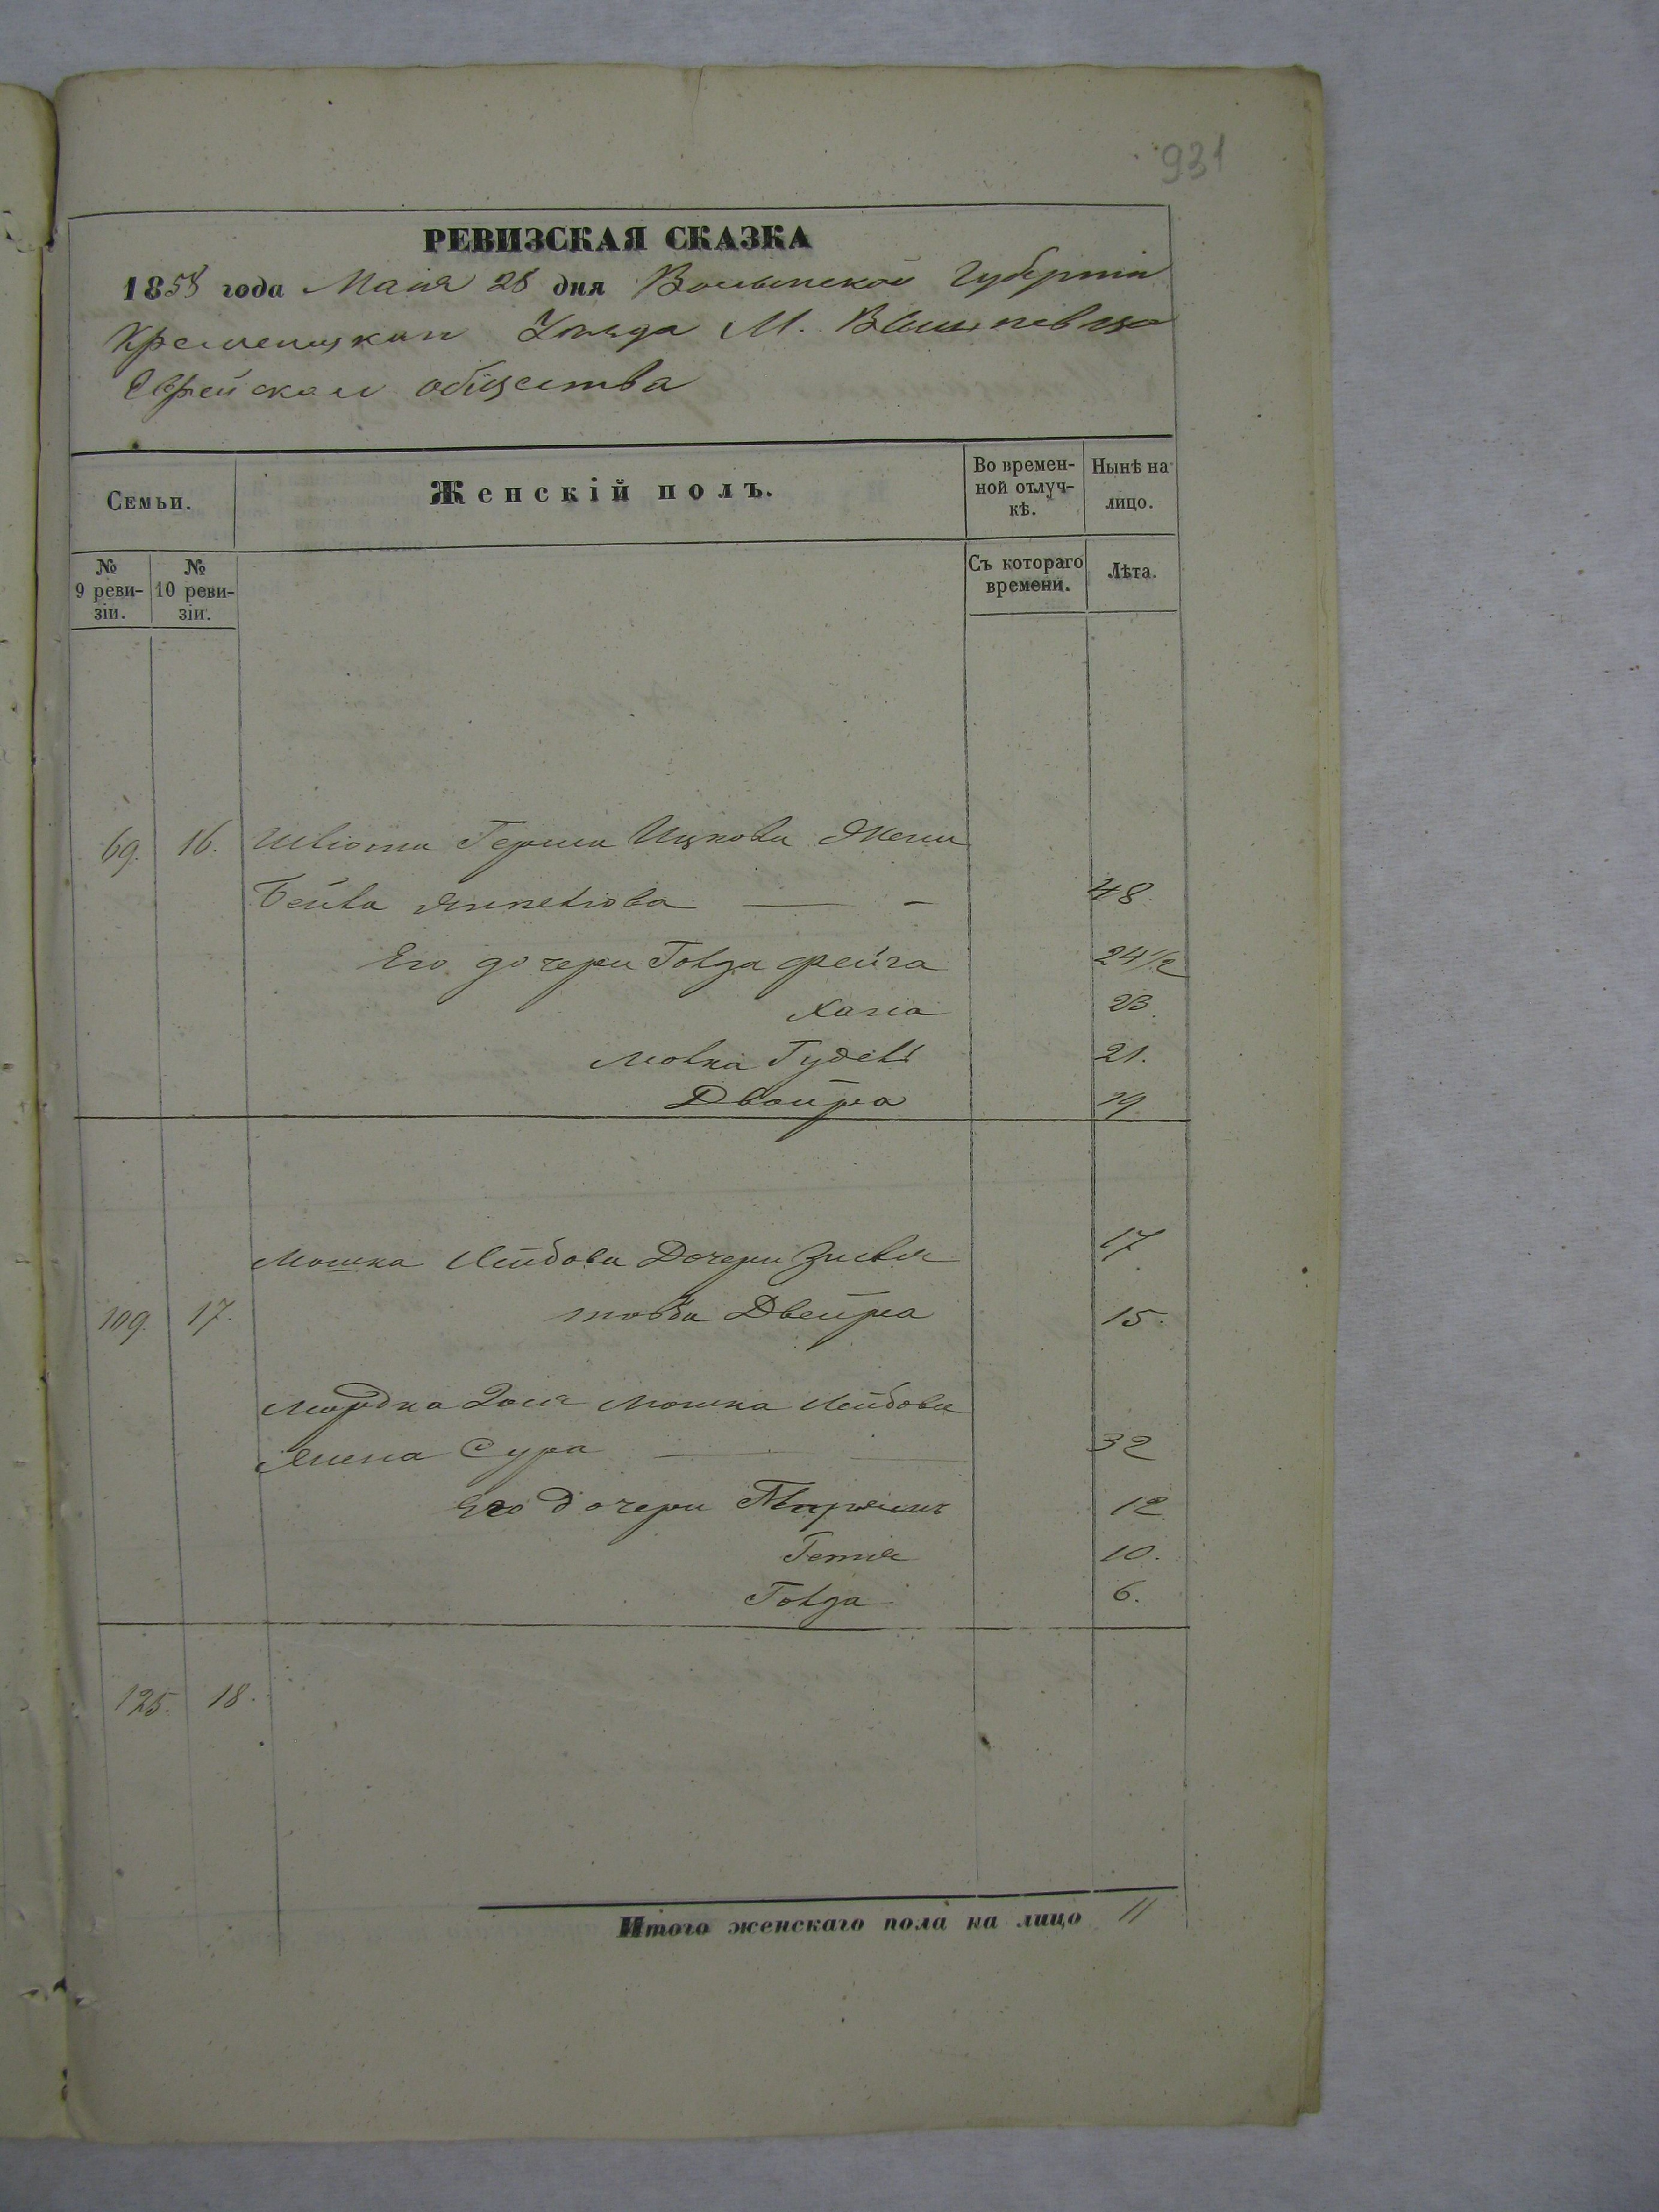 931
РЕВИЗСКАЯ СКАЗКА
1858 года Маія 28 дня Волынской Губерніи
Кременецкаго Уѣзда М. Вишневца
Еврейскаго общества
Семьи.
Женскій полъ.
Во времен-
ной отлуч-
кѣ.
Нынѣ на
лицо.
№
9 реви-
зіи.
№
10 реви-
зіи.
Съ котораго
времени.
Лѣта.
69. 16. Герша Ицкова Жена
Бейла 48
Его дочери Голда фейга 24 1/2
Хана 23.
Гудель 21.
Двойра 19
Мошка Лейбова Дочери Зисля 17
109. 17. Двейра 15.
Мордка Мошка Лейбова
Жена Сура 32
Его дочери 12
Гения 10.
Голда 6.
125. 18.
Итого женскаго пола на лицо 11